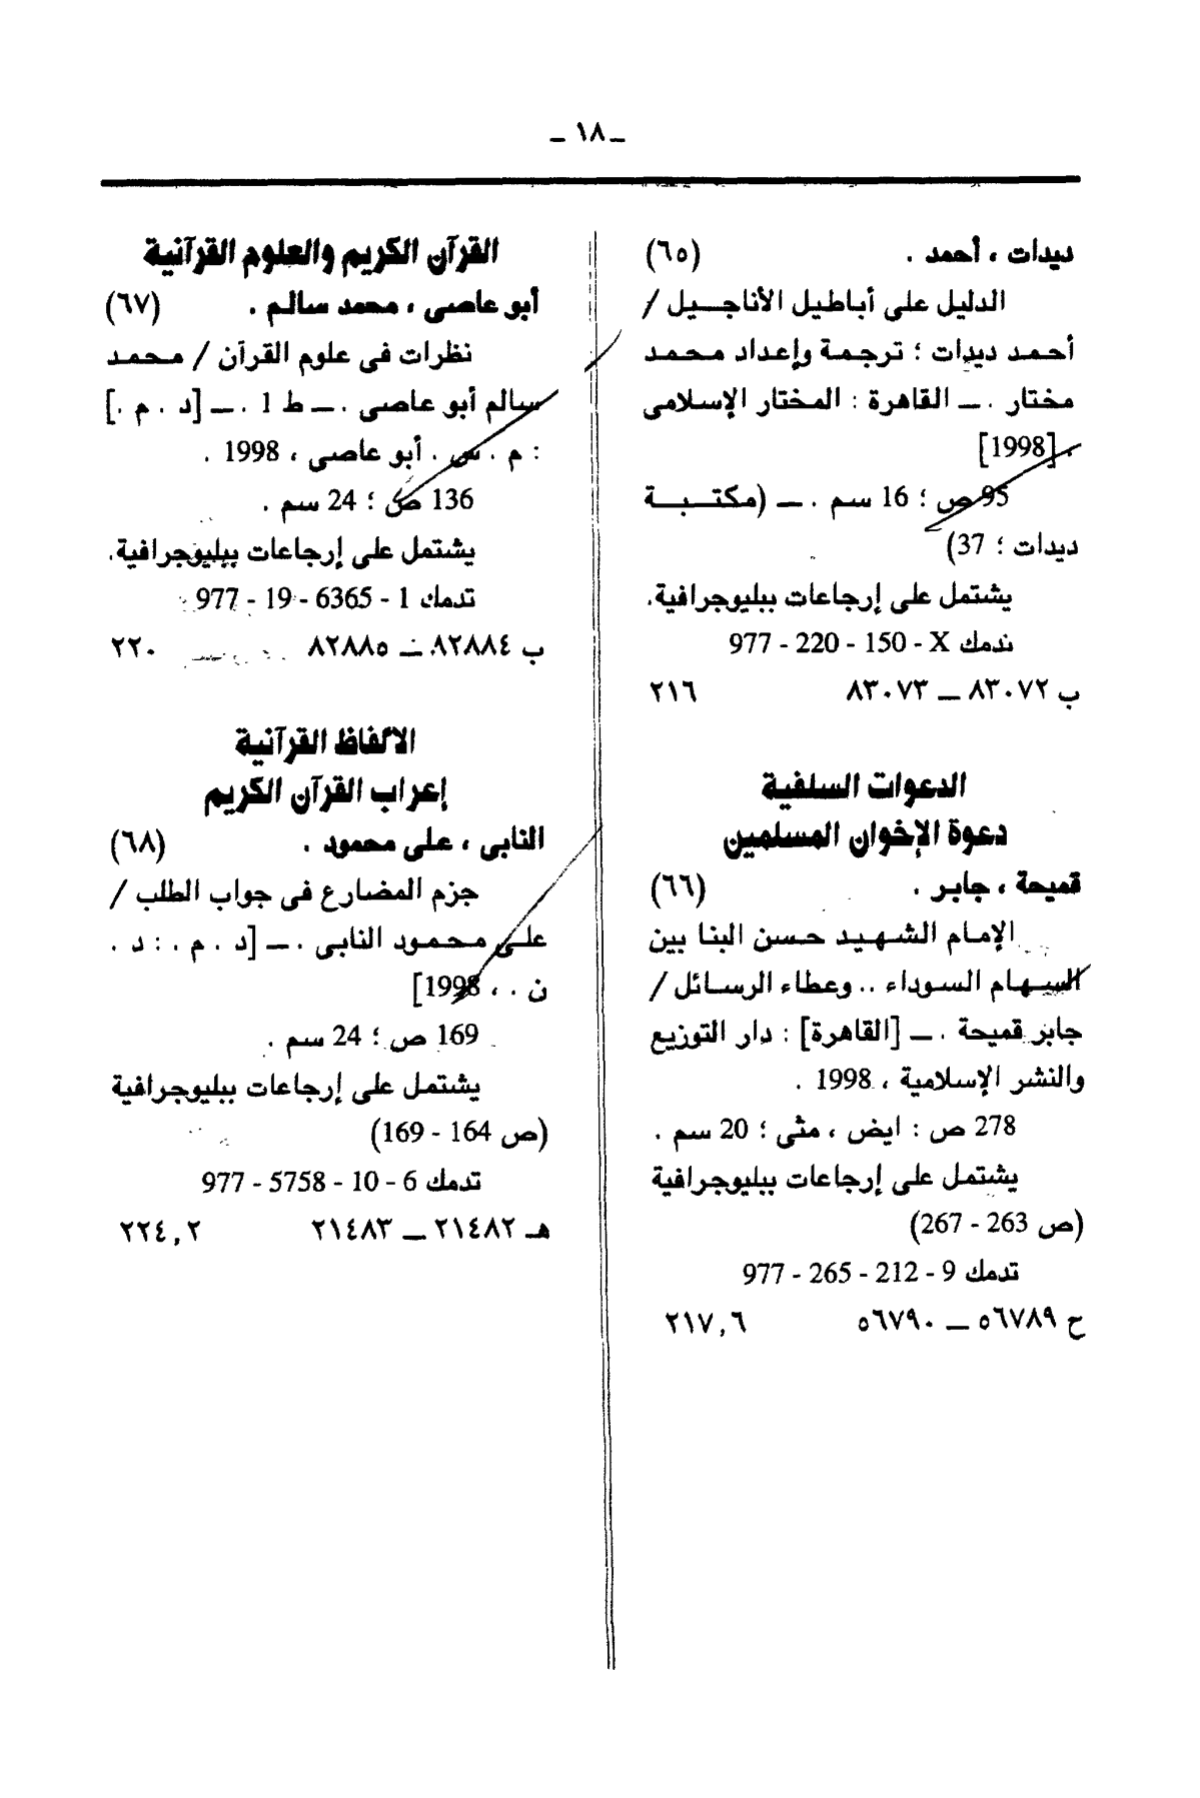 ـ ١٨ ـ
ديدات ، أحمد . (٦٥)
الدليل على أباطيل الأناجيل /
أحمد ديدات ؛ ترجمة وإعداد محمد
مختار . ــ القاهرة : المختار الإسلامى
. [1998]
95 ص ؛ 16 سم . ــ (مكتبة
ديدات ؛ 37)
يشتمل على إرجاعات ببليوجرافية.
ندمك X - 150 - 220 - 977
ب ٨٣٠٧٢ ــ ٨٣٠٧٣ ٢١٦
الدعوات السلفية
دعوة الإخوان المسلمين
قميحة ، جابر . (٦٦)
الإمام الشهيد حسن البنا بين
السهام السوداء .. وعطاء الرسائل /
جابر قميحة . ــ [القاهرة] : دار التوزيع
والنشر الإسلامية ، 1998 .
278 ص : ايض ، مثى ؛ 20 سم .
يشتمل على إرجاعات ببليوجرافية
(ص 263 - 267)
تدمك 9 - 212 - 265 - 977
ح ٥٦٧٨٩ ــ ٥٦٧٩٠ ٢١٧,٦
القرآن الكريم والعلوم القرآنية
أبو عاصى ، محمد سالم . (٦٧)
نظرات فى علوم القرآن / محمد
سالم أبو عاصى . ــ ط 1 . ــ [د . م .]
: م . س . أبو عاصى ، 1998 .
136 ص ؛ 24 سم .
يشتمل على إرجاعات ببليوجرافية.
تدمك 1 - 6365 - 19 - 977
ب ٨٢٨٨٤ ــ ٨٢٨٨٥ ٢٢٠
الالفاظ القرآنية
إعراب القرآن الكريم
النابى ، على محمود . (٦٨)
جزم المضارع فى جواب الطلب /
على محمود النابى . ــ [د . م . : د .
ن . ، 1998]
169 ص ؛ 24 سم .
يشتمل على إرجاعات ببليوجرافية
(ص 164 - 169)
تدمك 6 - 10 - 5758 - 977
هـ ٢١٤٨٢ ــ ٢١٤٨٣ ٢٢٤,٢